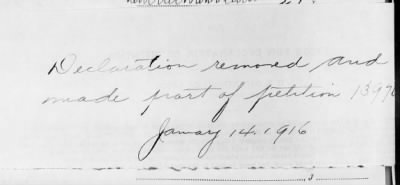 Declaration removed and
made part of petition 1397
Janury 14. 1916
3